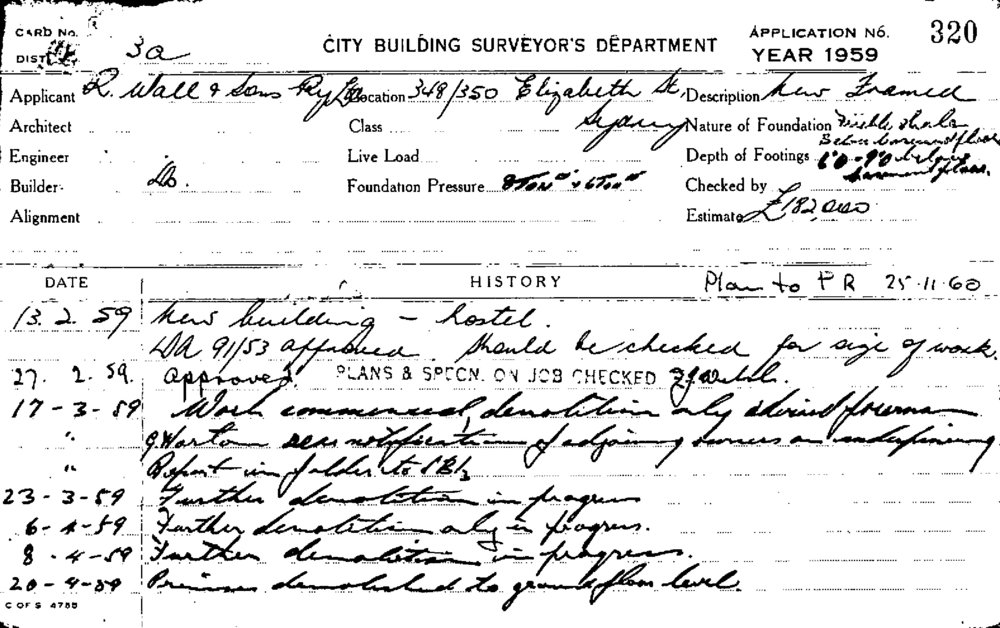 CARD No.
DIST. 3a
CITY BUILDING SURVEYOR'S DEPARTMENT
APPLICATION No. 320
YEAR 1959
Applicant R. Wall & Sons Pty Ltd Location 348/350 Elizabeth St, Sydney Description New Framed
Architect Class Nature of Foundation shale
Below basement floor
Engineer Live Load Depth of Footings 6'0 - 9'0 below
basement floor.
Builder Do. Foundation Pressure 8 Ton & 6 Ton Checked by
Alignment Estimate £182,000
DATE HISTORY Plan to P R 25-11-60
13. 2. 59 New building - hostel.
DA 91/53 approved. Should be checked for sige of work.
27. 2. 59. Approved. PLANS & SPECN. ON JOB CHECKED
17-3-59 Work commenced, demolition only advised foreman
" G. Horton re notification of adjoining owners on underpinning
" Report in folder to
23-3-59 Further demolition in progress
6-4-59 Further demolition only in progress.
8-4-59 Further demolition in progress.
20-4-59 Premises demolished to ground floor level.
C OF S 4788